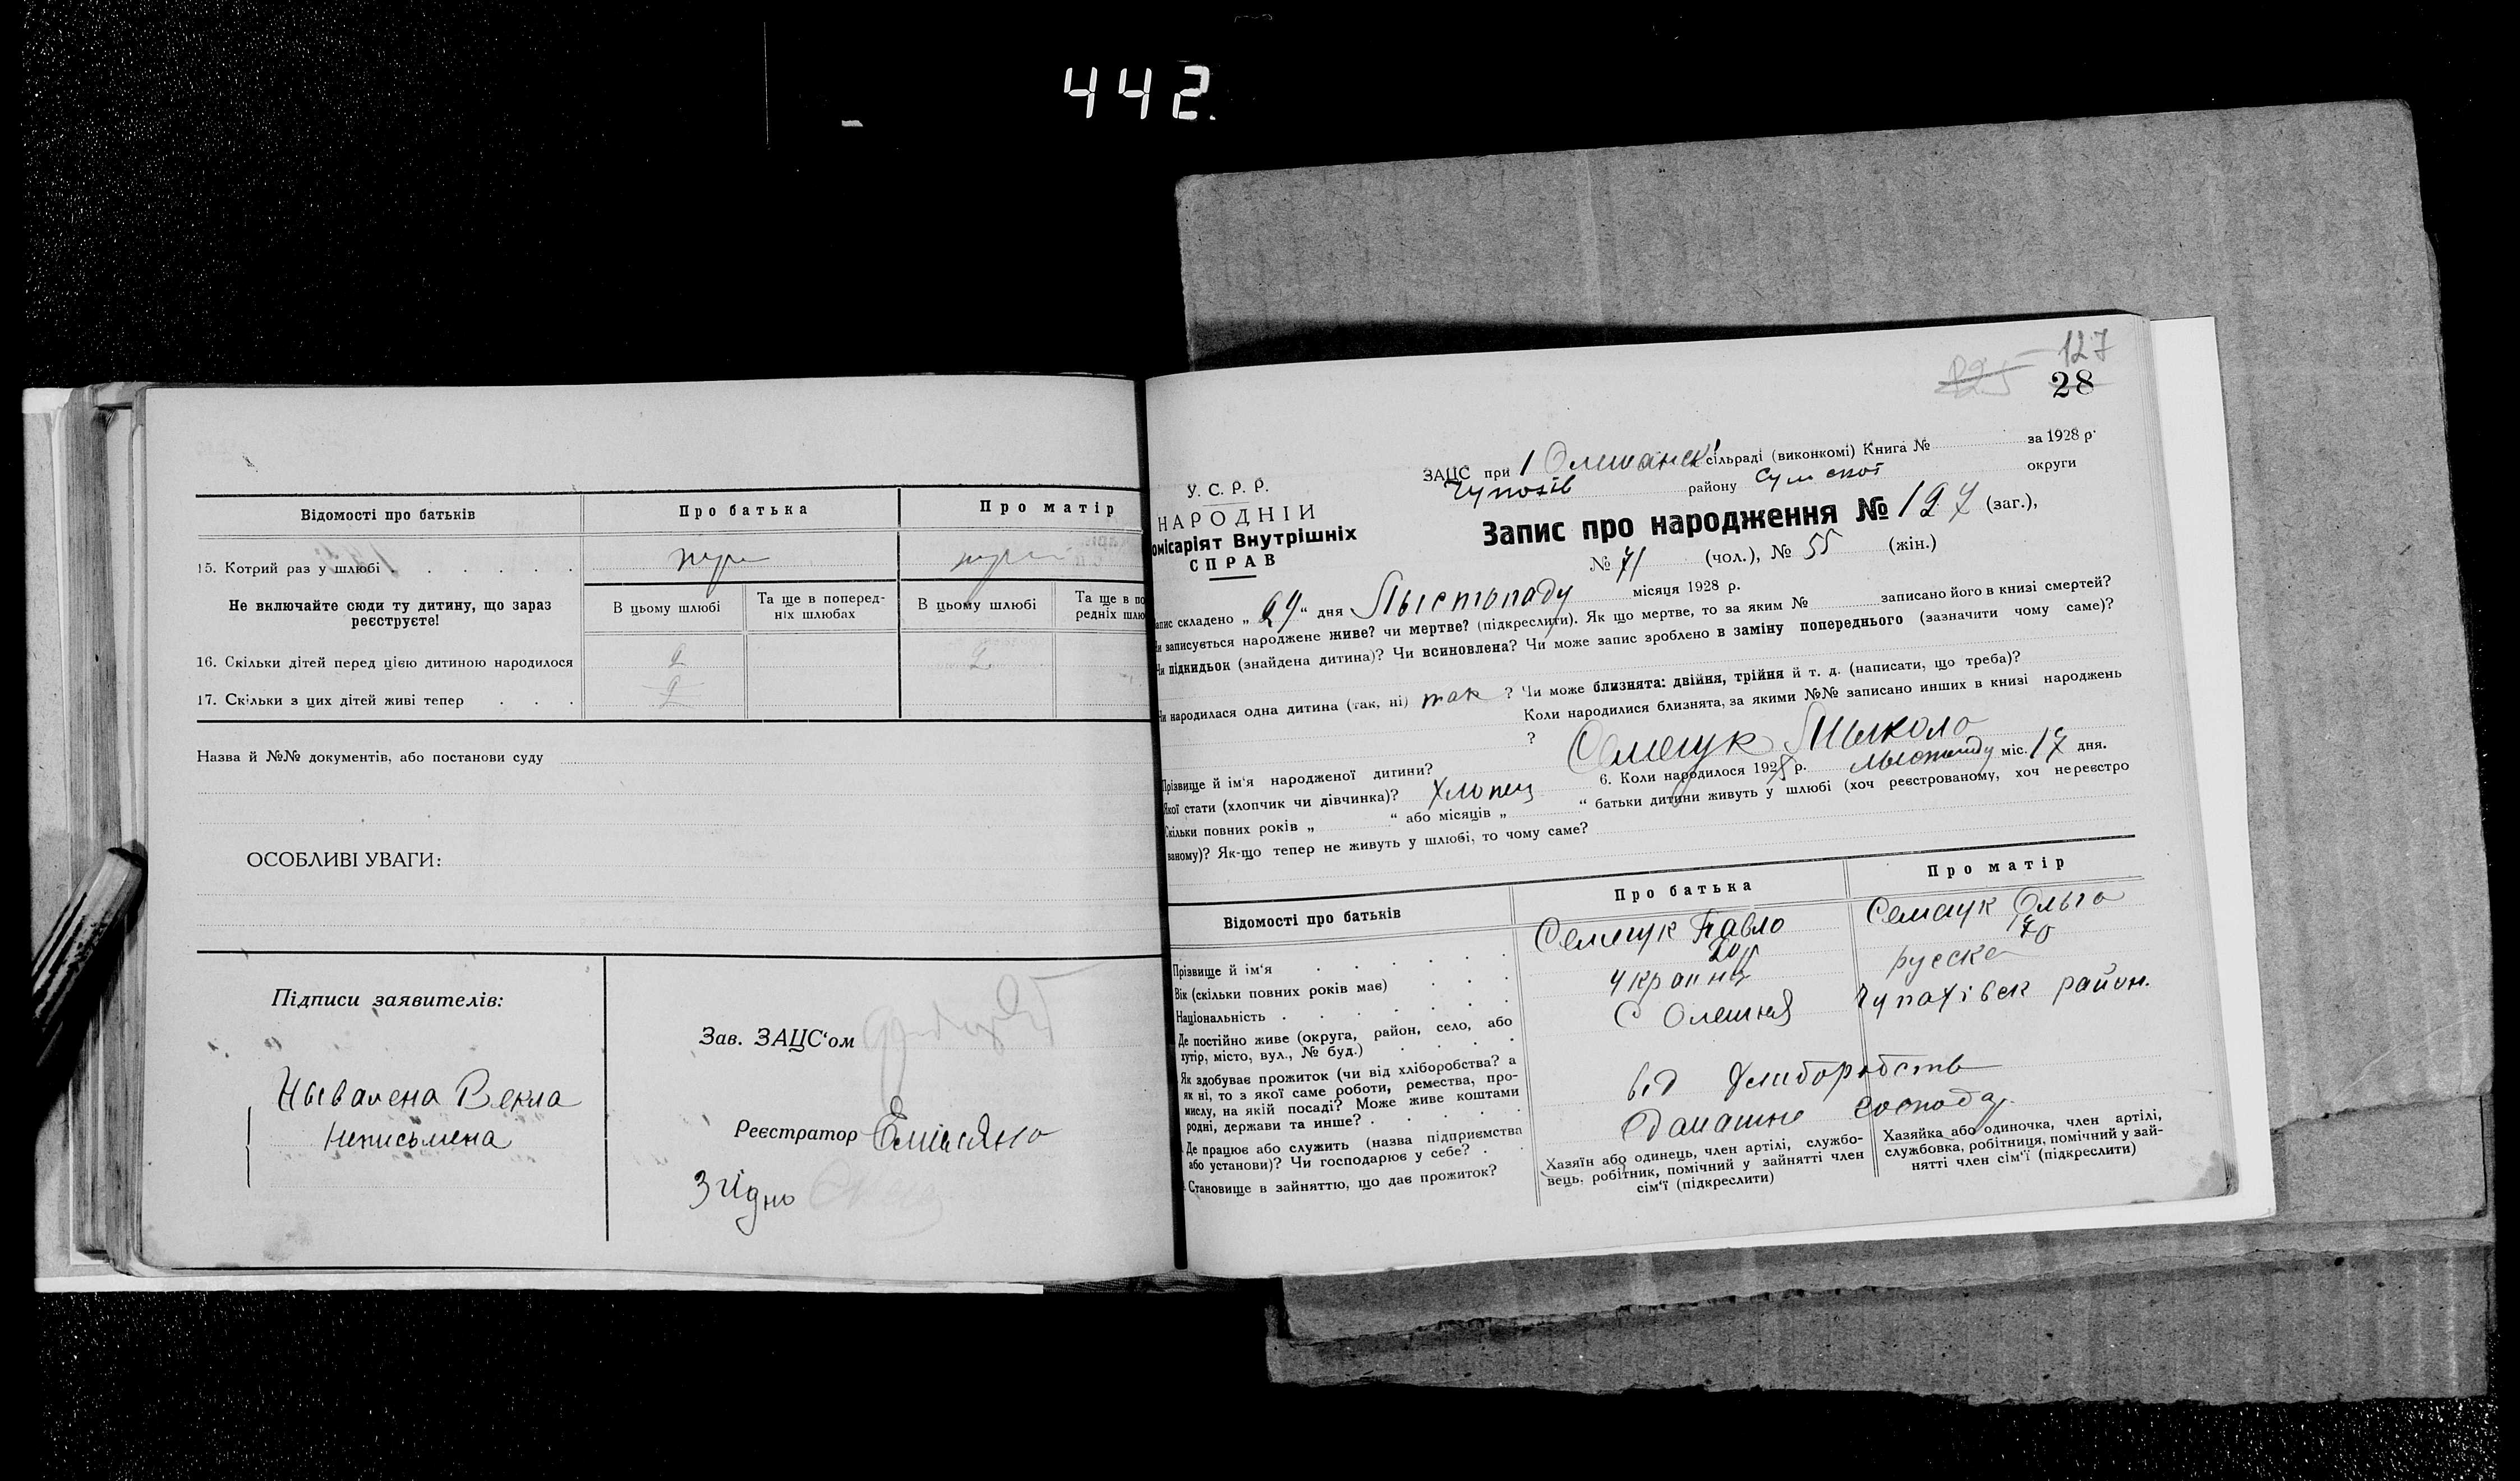 442.
Відомості про батьків
Про батька
Про матір
15. Котрий раз у шлюбі . . . . . .
Не включайте сюди ту дитину, що зараз реєструєте!
В цьому шлюбі
Та ще в поперед-
ніх шлюбах
В цьому шлюбі
Та ще в по
редніх шлю
16. Скільки дітей перед цією дитиною народилося 2 2
17. Скільки з цих дітей живі тепер . . . 2
Назва й №№ документів, або постанови суду
ОСОБЛИВІ УВАГИ:
Підписи заявителів:
Векла
неписьмена
Зав. ЗАЦС'ом
Реєстратор
Згідно
127
28
У. С. Р. Р.
НАРОДНІЙ
омісаріят Внутрішніх
СПРАВ
ЗАЦС при сільраді (виконкомі) Книга № за 1928 р.
району округи
Запис про народження № 127 (заг.),
№ 71 (чол.), № 55 (жін.)
апис складено „ “ дня Лыстопаду місяця 1928 р.
и записується народжене живе? чи мертве? (підкреслити). Як що мертве, то за яким № записано його в книзі смертей?
Чи підкидьок (знайдена дитина)? Чи всиновлена? Чи може запис зроблено в заміну попереднього (зазначити чому саме)?
Чи народилася одна дитина (так, ні) так ? Чи може близнята: двійня, трійня й т. д. (написати, що треба)?
Коли народилися близнята, за якими №№ записано инших в книзі народжень
?
Прізвище й ім'я народженої дитини? Мыкола
Якої стати (хлопчик чи дівчинка)? хлопец 6. Коли народилося 1928 р. лыстопаду міс. 17 дня.
Скільки повних років „ “ або місяців „ “ батьки дитини живуть у шлюбі (хоч реєстрованому, хоч нереєстро
ваному)? Як-що тепер не живуть у шлюбі, то чому саме?
Відомості про батьків
Про батька
Про матір
Прізвище й ім'я . . . . . . Павло Ольга
Вік (скільки повних років має) . . .
Національність . . . . . . украинц руска
Де постійно живе (округа, район, село, або
хутір, місто, вул., № буд.) . . . . С Олешня район.
Як здобуває прожиток (чи від хліборобства? а
як ні, то з якої саме роботи, ремества, про-
мислу, на якій посаді? Може живе коштами
родні, держави та инше? . . . . від
Де працює або служить (назва підприємства
або установи)? Чи господарює у себе? . .
Становище в зайняттю, що дає прожиток?
Хазяїн або одинець, член артілі, службо-
вець, робітник, помічний у зайнятті член
сім'ї (підкреслити)
Хазяйка або одиночка, член артілі,
службовка, робітниця, помічний у зай-
нятті член сім'ї (підкреслити)